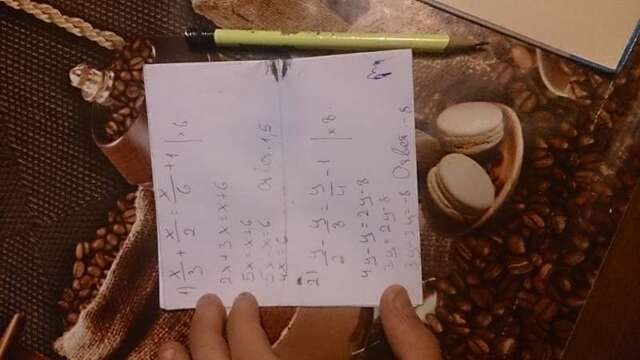 1) x/3 + x/2 = x/6 + 1 | x 6
2x + 3x = x + 6
5x = x + 6
5x - x = 6
4x = 6 Ответ 1,5
2) y/2 - y/8 = y/4 - 1 | x 8
4y - y = 2y - 8
3y = 2y - 8
3y - 2y = -8 Ответ - 8